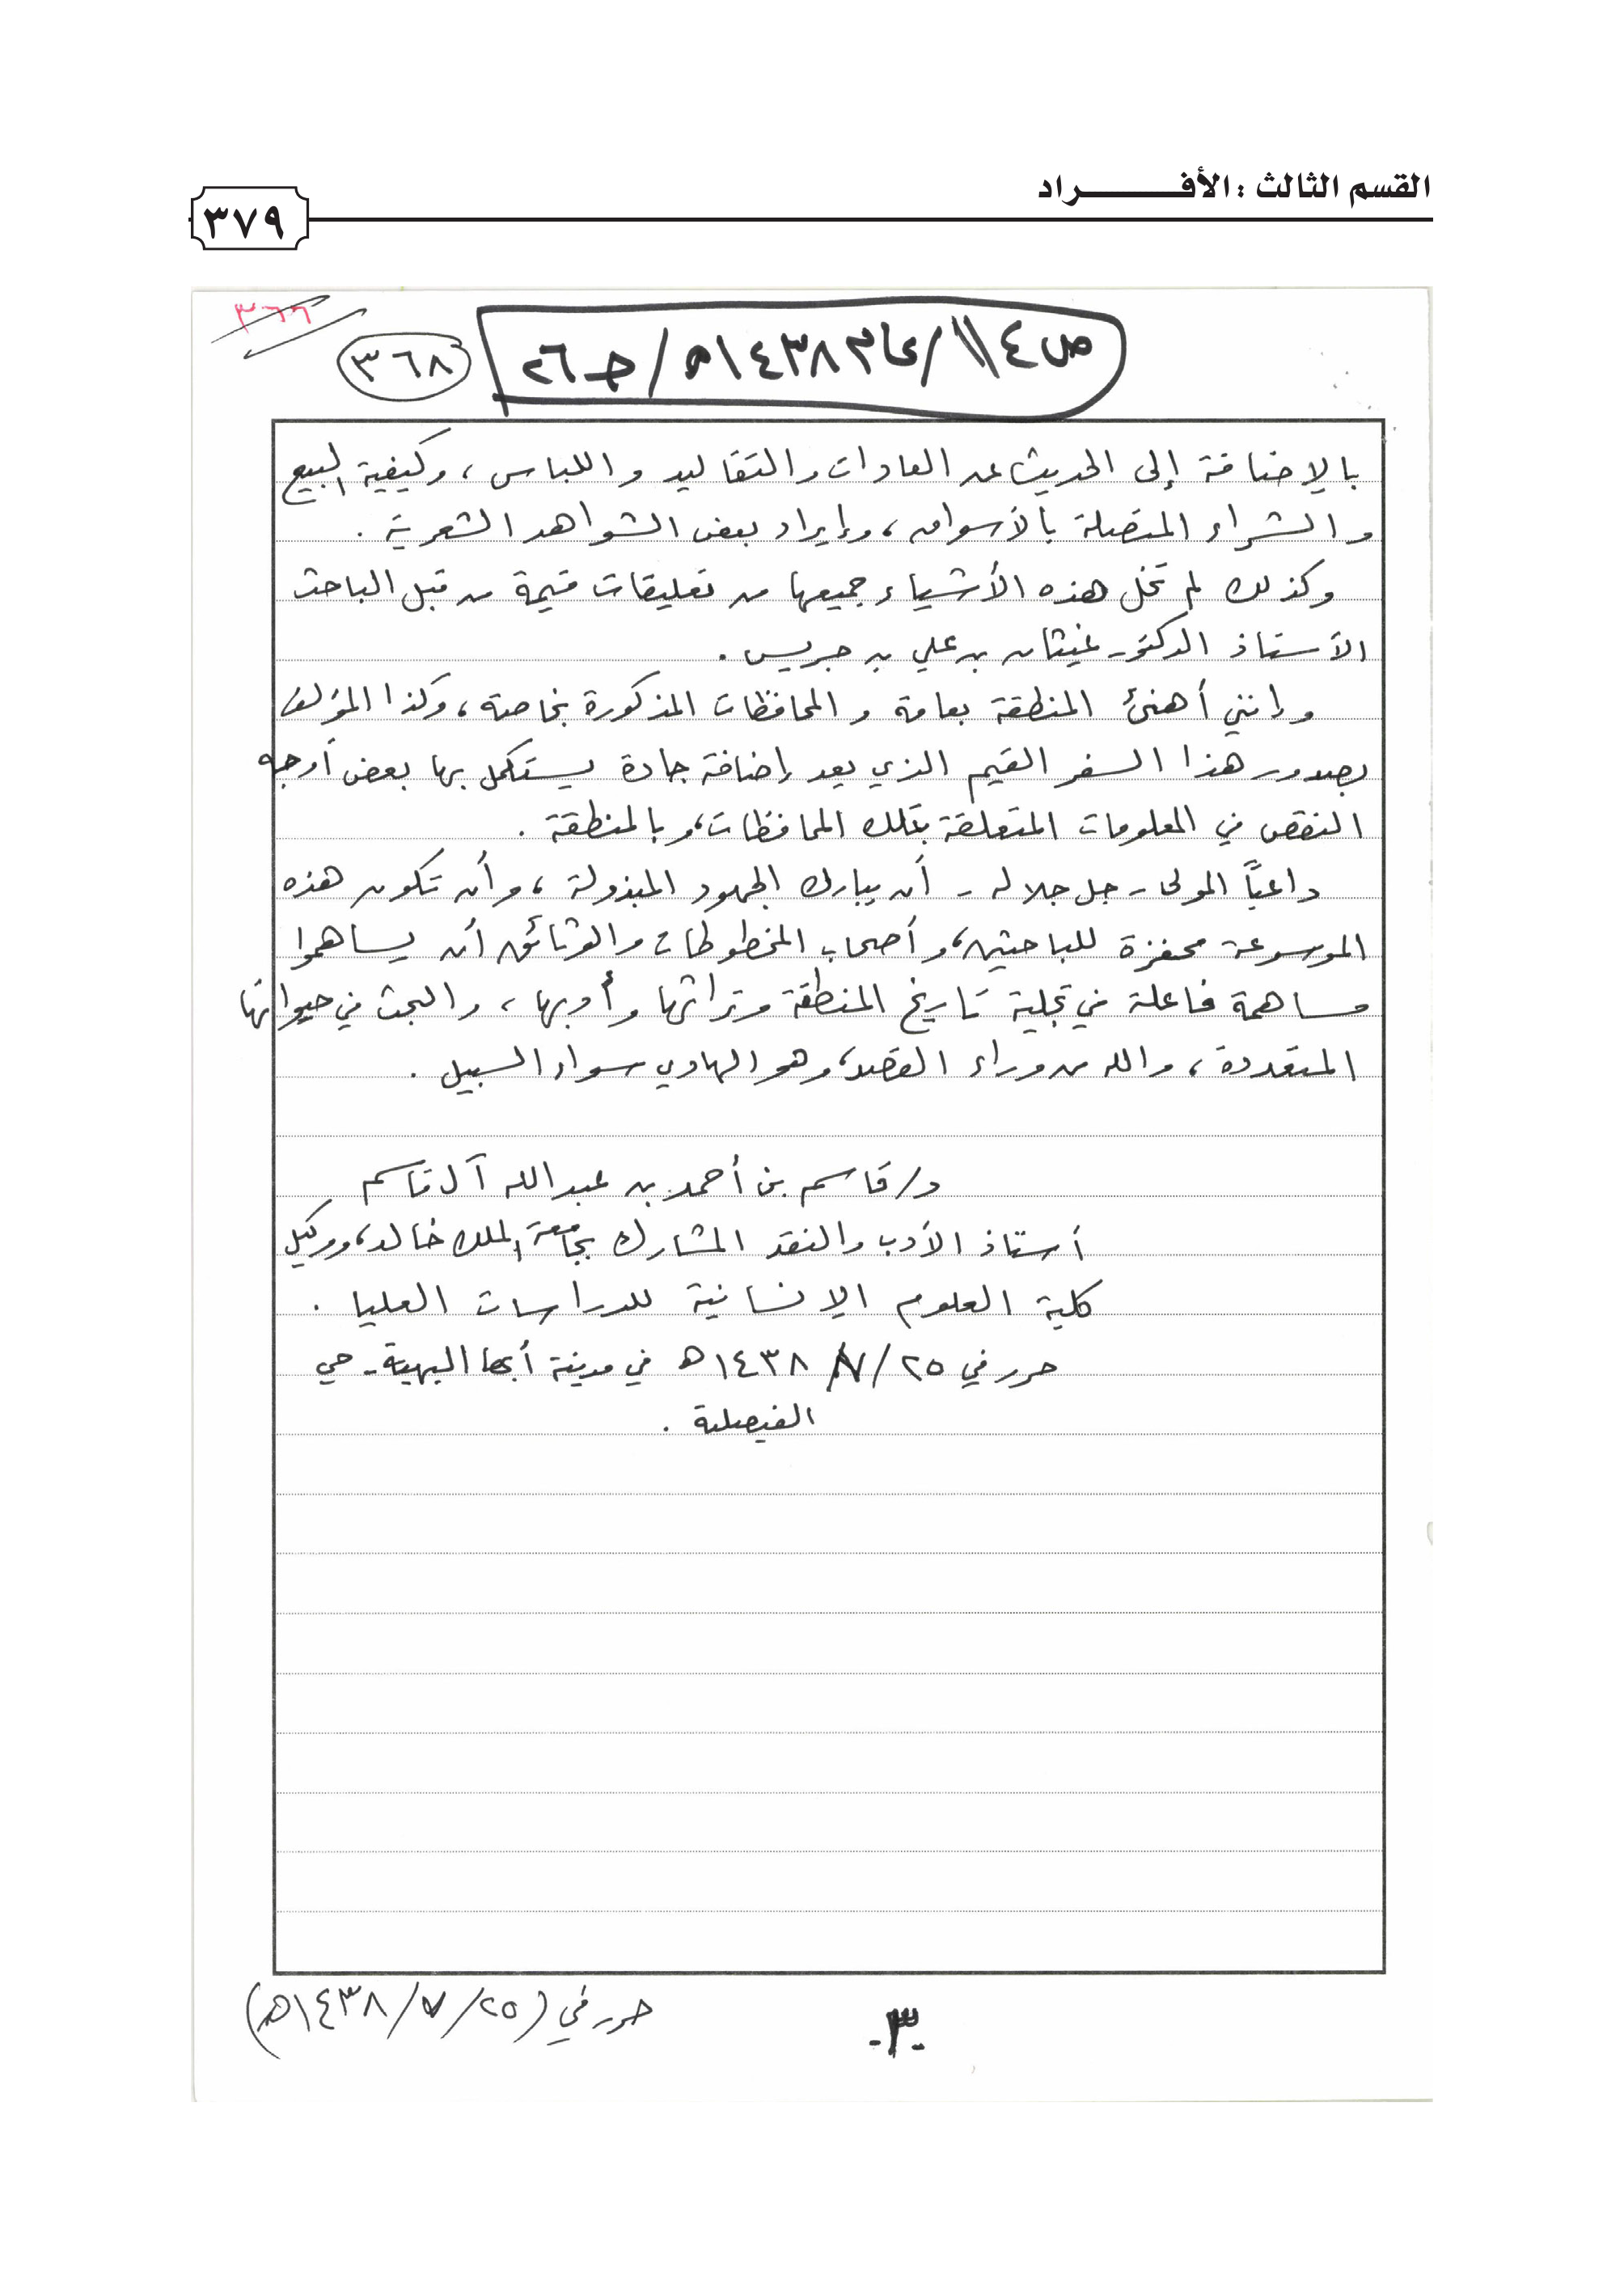 القسم الثالث : الأفـــــــــراد
٣٧٩
٣٦٦
ص ١١٤ / عام ١٤٣٨هـ / جـ ٢٦
٣٦٨
بالإضافة إلى الحديث عن العادات والتقاليد واللباس ، وكيفية البيع
والشراء المتصلة بالأسواق ، وإيراد بعض الشواهد الشعرية .
وكذلك لم تخل هذه الأشياء جميعها من تعليقات قيمة من قبل الباحث
الأستاذ الدكتور غيثان بن علي بن جريس .
وإنني أهنئ المنطقة بعامة والمحافظات المذكورة بخاصة ، وكذا المؤلف
بصدور هذا السفر القيم الذي يعد إضافة جادة يستكمل بها بعض أوجه
النقص في المعلومات المتعلقة بتلك المحافظات ، وبالمنطقة .
داعيًا المولى - جل جلاله - أن يبارك الجهود المبذولة ، وأن تكون هذه
الموسوعة محفزة للباحثين ، وأصحاب المخطوطات والوثائق أن يساهموا
مساهمة فاعلة في تجلية تاريخ المنطقة وتراثها وأدبها ، والبحث في حيواتها
المتعددة ، والله من وراء القصد ، وهو الهادي سواء السبيل .
د/ قاسم بن أحمد بن عبدالله آل قاسم
أستاذ الأدب والنقد المشارك بجامعة الملك خالد ، ووكيل
كلية العلوم الإنسانية للدراسات العليا .
حرر في ٢٥ / ٧ / ١٤٣٨هـ في مدينة أبها البهية - حي
الفيصلية .
حرر في (٢٥ / ٧ / ١٤٣٨هـ)
-٣-